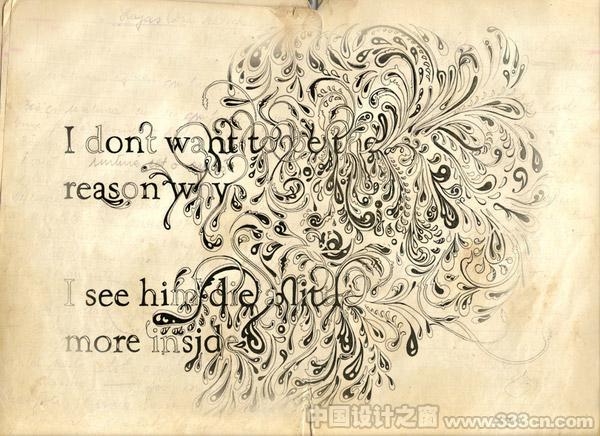 I dont want to be the
reason why
I see him die a little
more inside
中国设计之窗 www.333cn.com